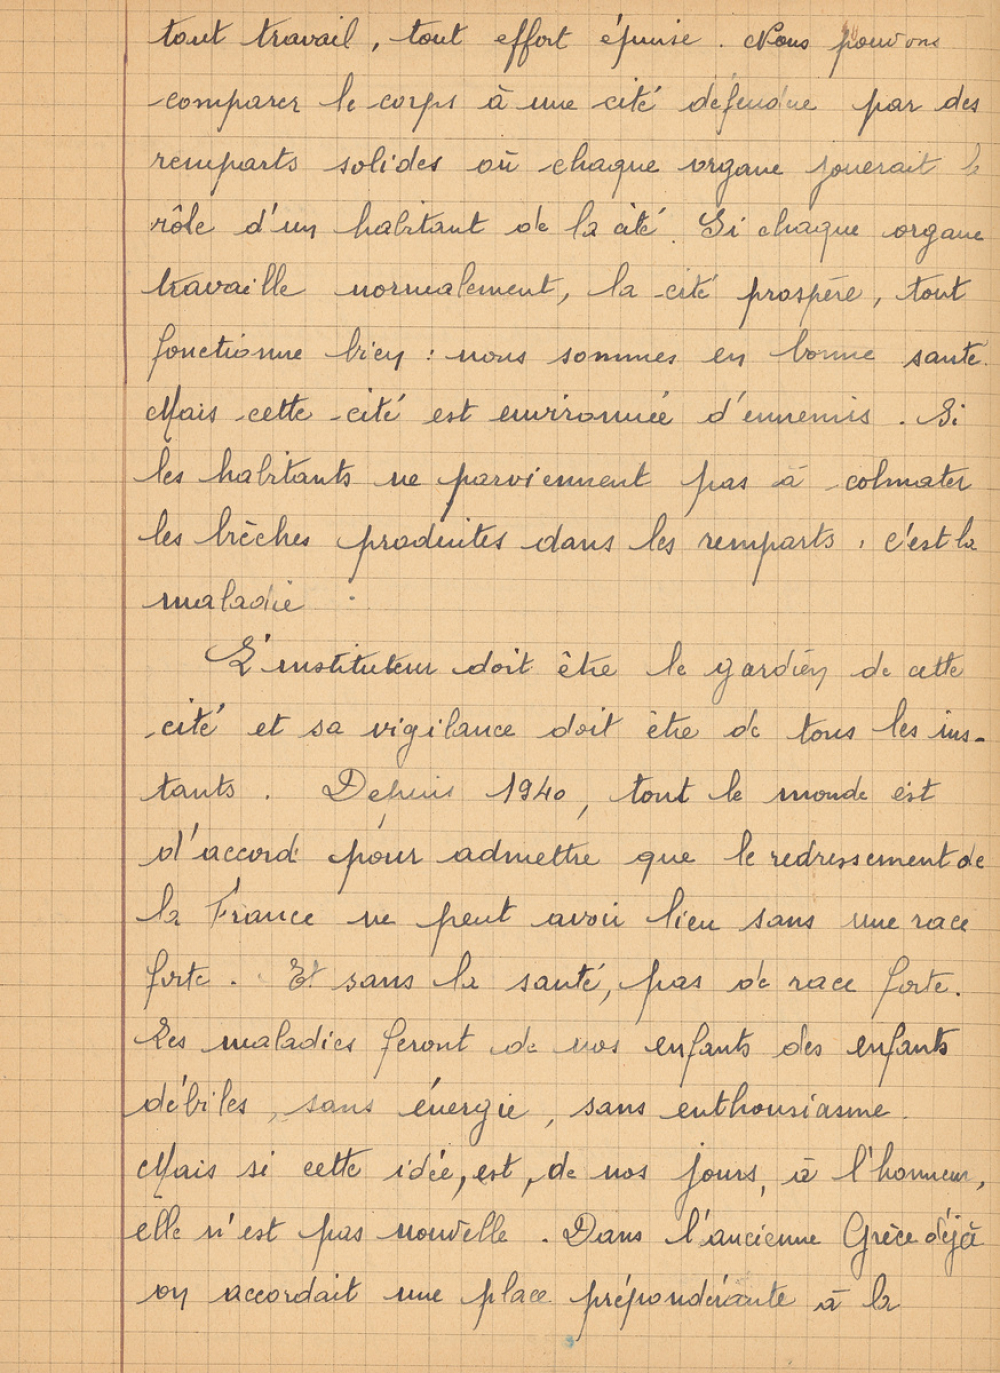 tout travail, tout effort épuise. Nous pouvons
comparer le corps à une cité défendue par des
remparts solides où chaque organe jouerait le
rôle d'un habitant de la cité. Si chaque organe
travaille normalement, la cité prospère, tout
fonctionne bien : nous sommes en bonne santé.
Mais cette cité est environnée d'ennemis. Si
les habitants ne parviennent pas à colmater
les brèches produites dans les remparts, c'est la
maladie.
L'instituteur doit être le gardien de cette
cité et sa vigilance doit être de tous les ins-
tants. Depuis 1940, tout le monde est
d'accord pour admettre que le redressement de
la France ne peut avoir lieu sans une race
forte. Et sans la santé, pas de race forte.
Les maladies feront de nos enfants des enfants
débiles, sans énergie, sans enthousiasme.
Mais si cette idée, est, de nos jours, à l'honneur,
elle n'est pas nouvelle. Dans l'ancienne Grèce déjà
on accordait une place prépondérante à la